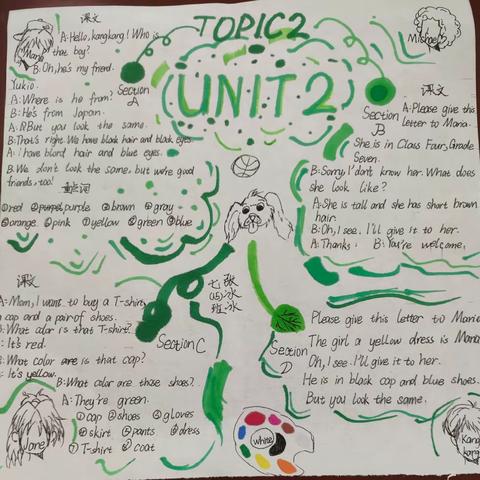 TOPIC2
UNIT 2
课文
A:Hello, kangkang! Who is
that boy?
B:Oh, he's my friend.
Yukio.
A:Where is he from?
B:He's from Japan.
A:But you look the same.
B:That's right. We have black hair and black eyes.
A:I have blond hair and blue eyes.
B.We don't look the same, but we're good
friends, too!
Maria
Section
A
重点词
①red ②purple ③brown ④gray
⑤orange ⑥pink ⑦yellow ⑧green ⑨blue
Michael
课文
Section
B
A:Please give this
letter to Maria.
She is in Class Four, Grade
Seven.
B:Sorry I don't know her. What does
she look like?
A:She is tall and she has short brown
hair
B:Oh, I see. I'll give it to her.
A:Thanks. B:You're welcome.
课文
A:Mom, I want to buy a T-shirt
a cap and a pair of shoes.
B:What color is that T-shirt?
: It's red.
What color are is that cap?
: It's yellow.
B:What color are those shoes?
A:They're green.
①cap ②shoes ③gloves
④skirt ⑤pants ⑥dress
⑦T-shirt ⑧coat
Jane
Section C
七(15)班
张冰冰
Section
D
Please give this letter to Maria
The girl a yellow dress is Maria
Oh, I see. I'll give it to her.
He is in black cap and blue shoes.
But you look the same.
white
Kang
kang